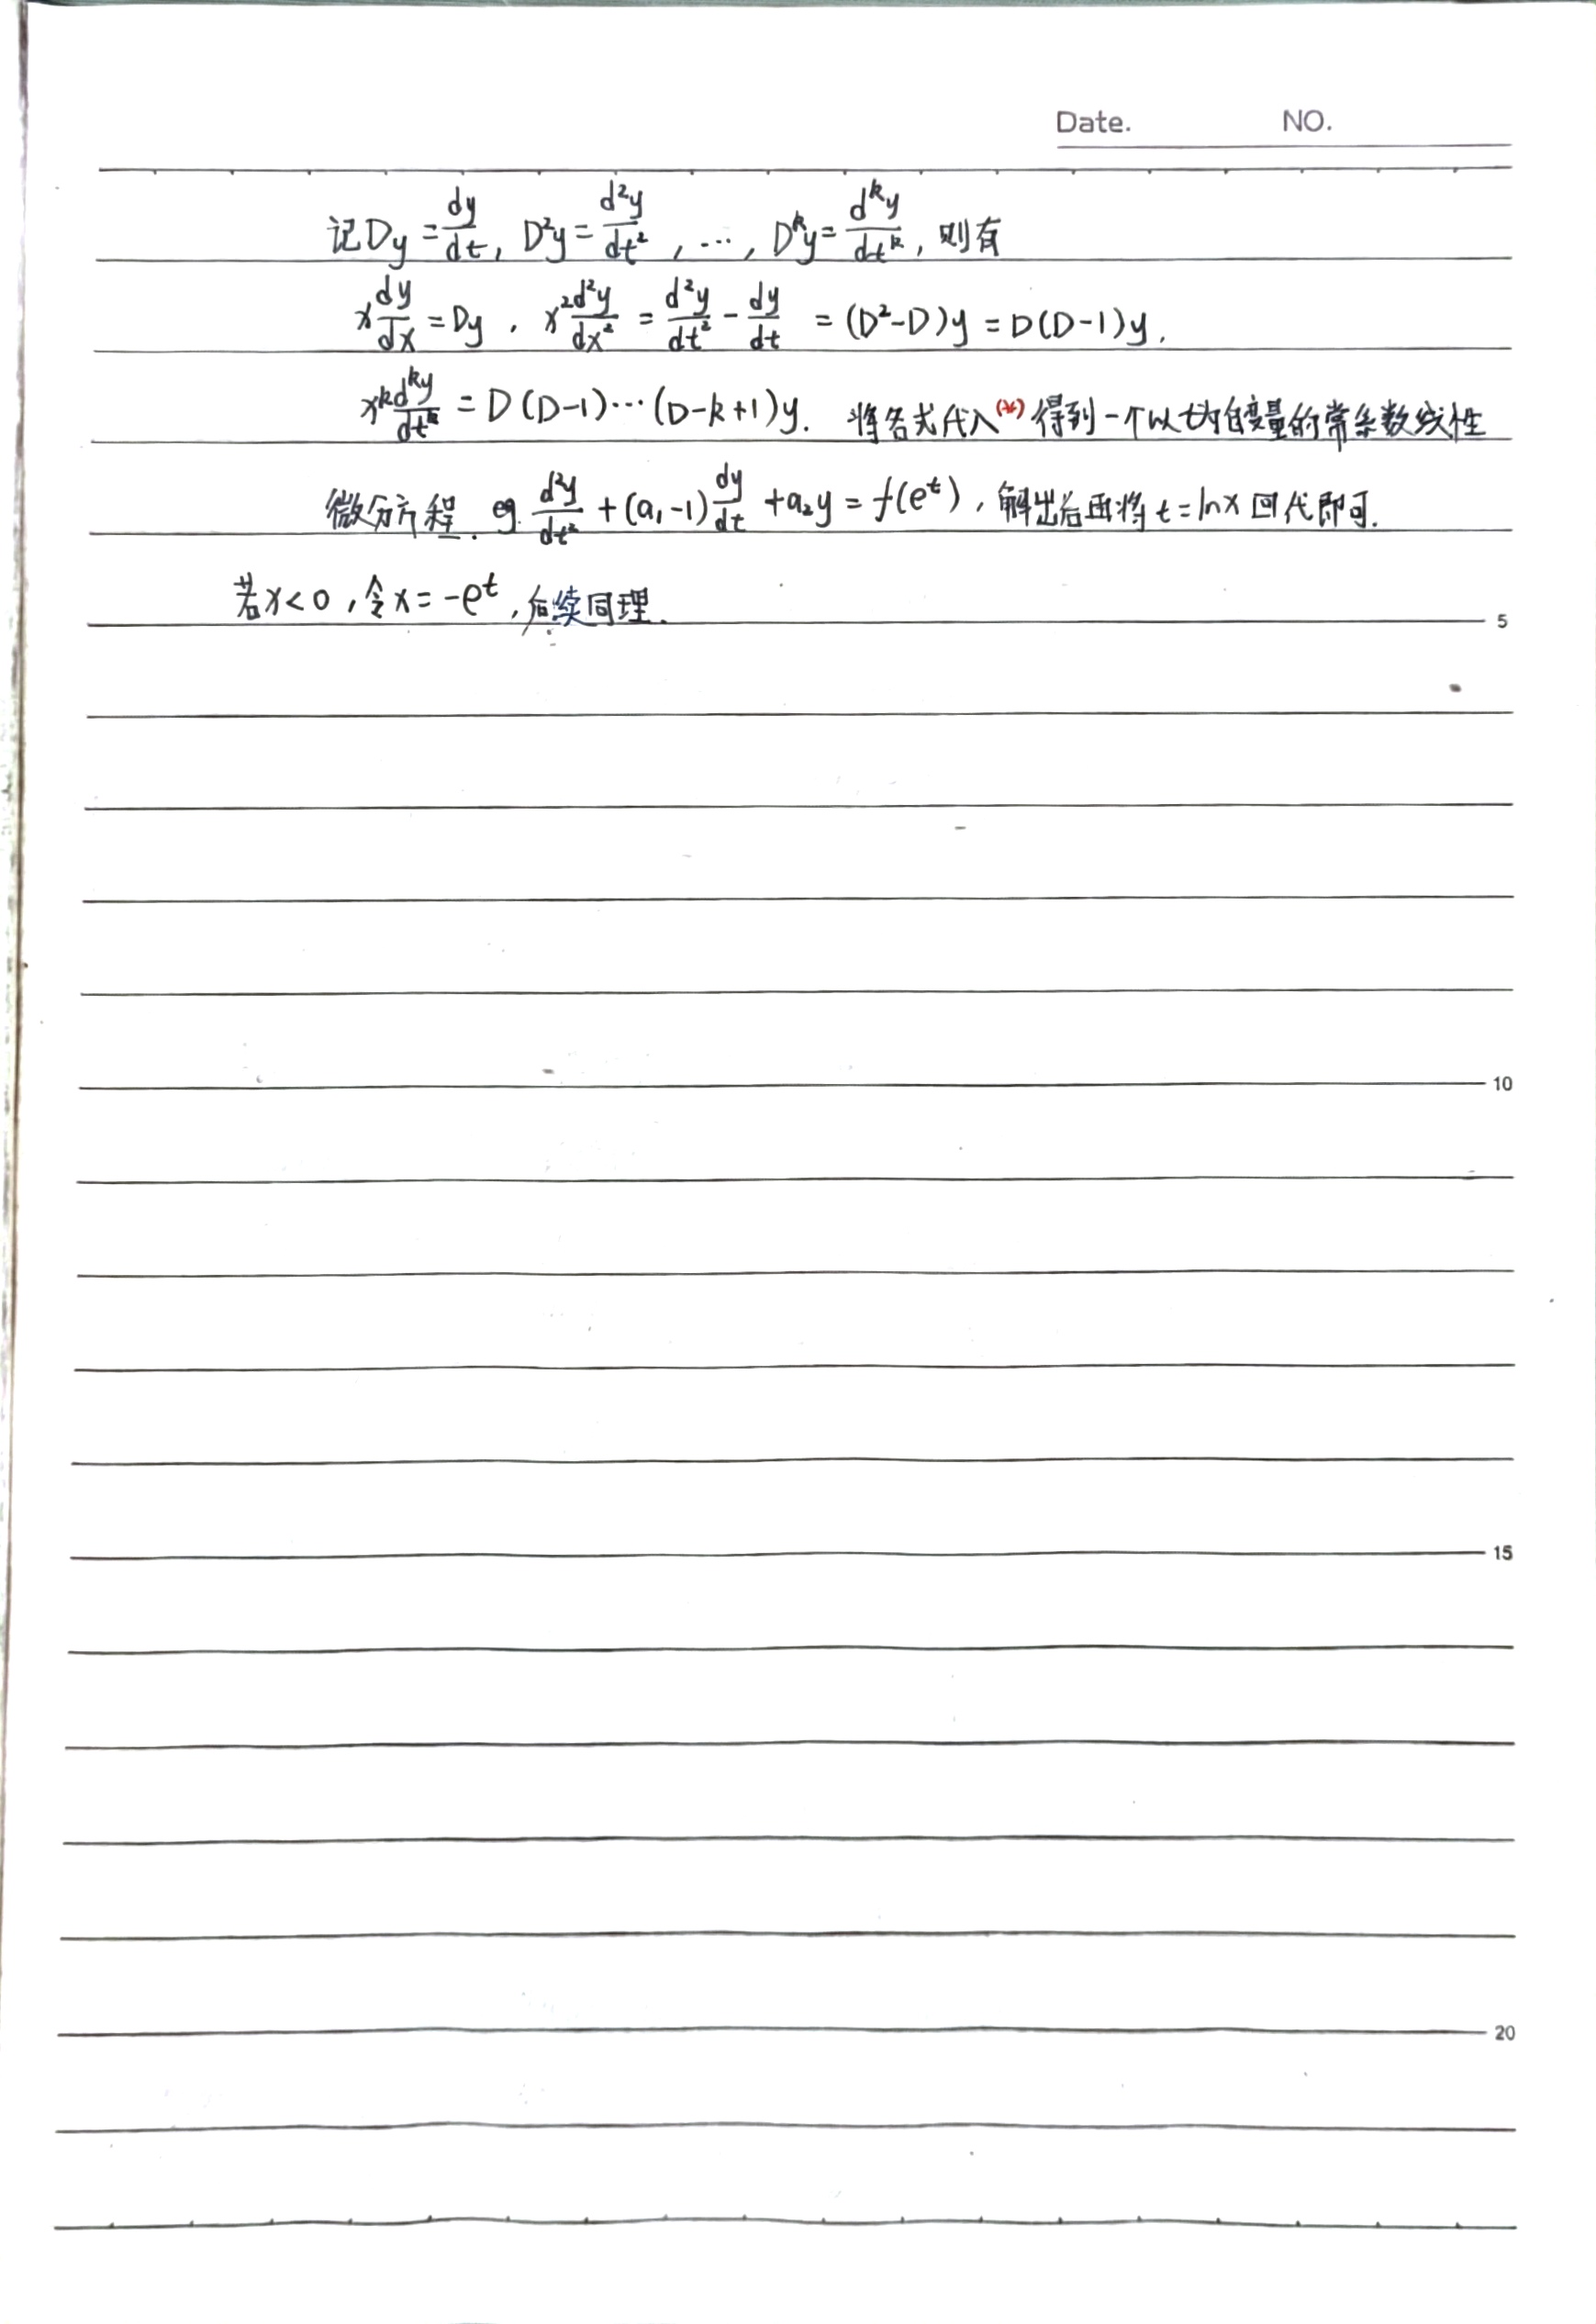 Date. NO.
记Dy = dy/dt, D²y = d²y/dt², ..., Dᵏy = dᵏy/dtᵏ, 则有
x dy/dx = Dy, x² d²y/dx² = d²y/dt² - dy/dt = (D²-D)y = D(D-1)y.
xᵏ dᵏy/dtᵏ = D(D-1)...(D-k+1)y. 将各式代入(*)得到一个以t为自变量的常系数线性
微分方程. eg. d²y/dt² + (a₁-1) dy/dt + a₂y = f(eᵗ), 解出后再将t=lnx回代即可.
若x<0, 令x=-eᵗ, 后续同理.
5
10
15
20